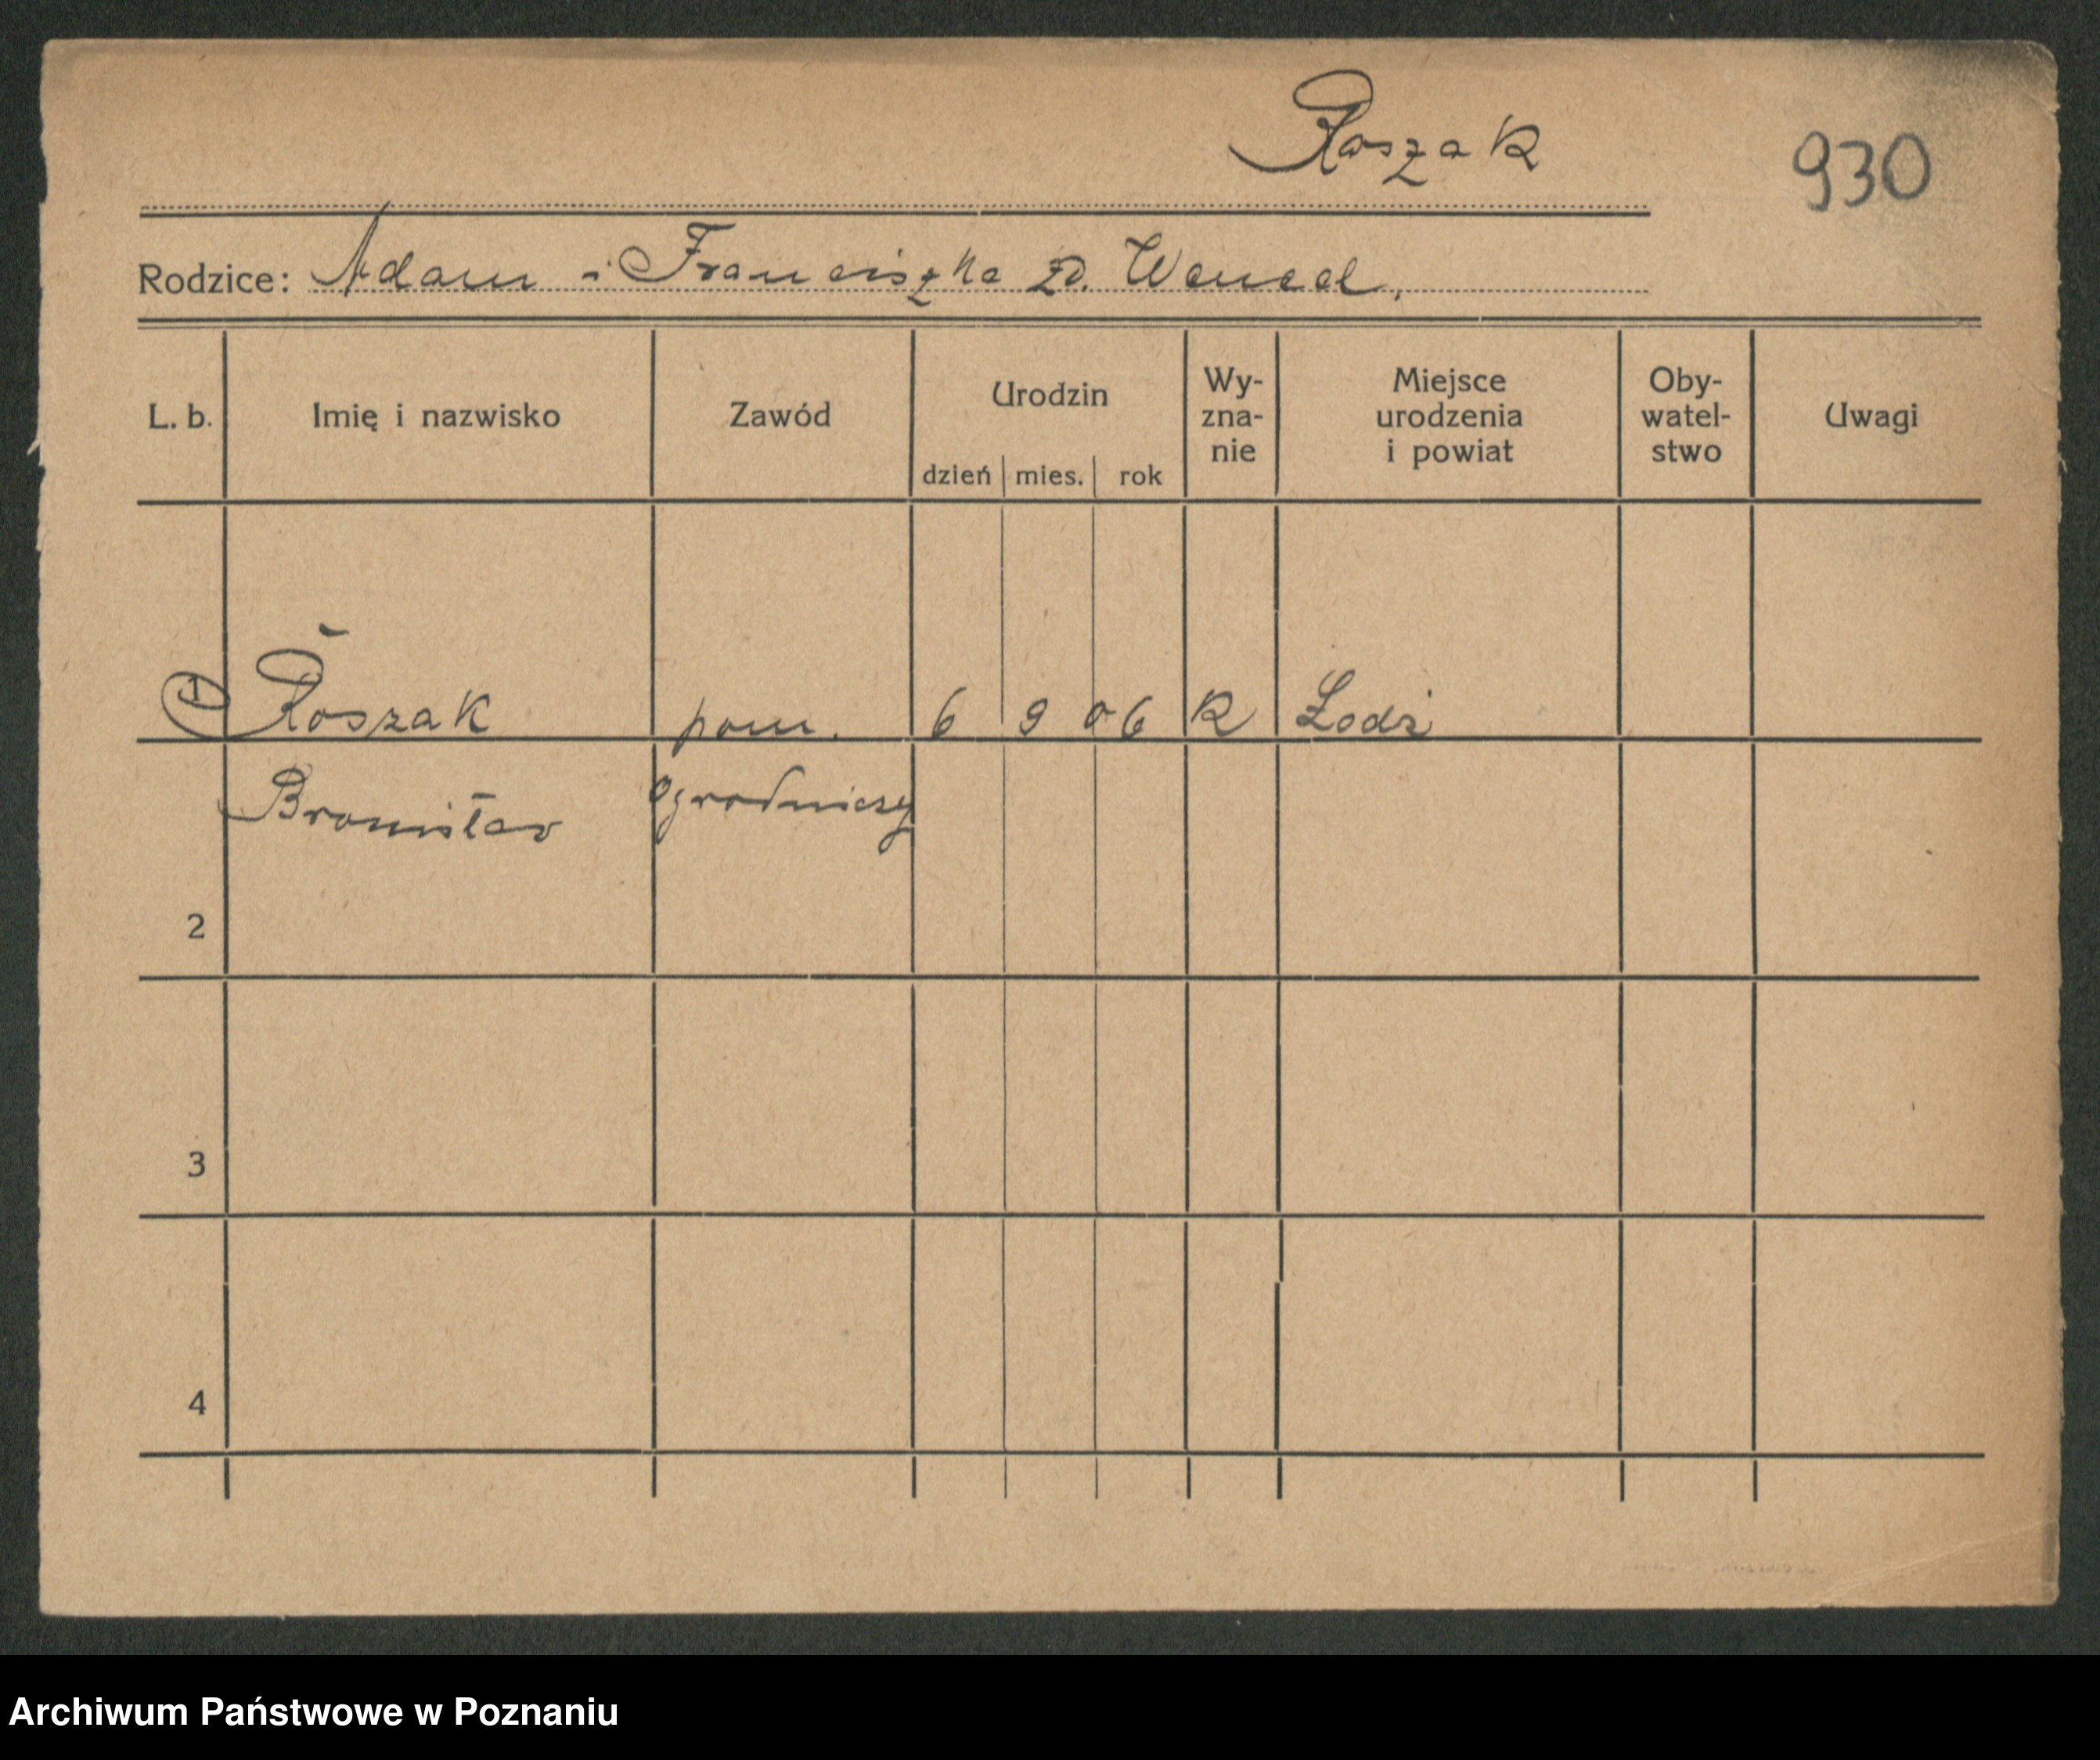 Roszak
930
Rodzice: Adam i Franciszka zd. Wencel,
L. b. Imię i nazwisko Zawód Urodzin Wy- Miejsce Oby- Uwagi
zna- urodzenia watel-
nie i powiat stwo
dzień mies. rok
1 Roszak pom. 6 9 06 R Łodź
Bronisław ogrodniczy
2
3
4
Archiwum Państwowe w Poznaniu